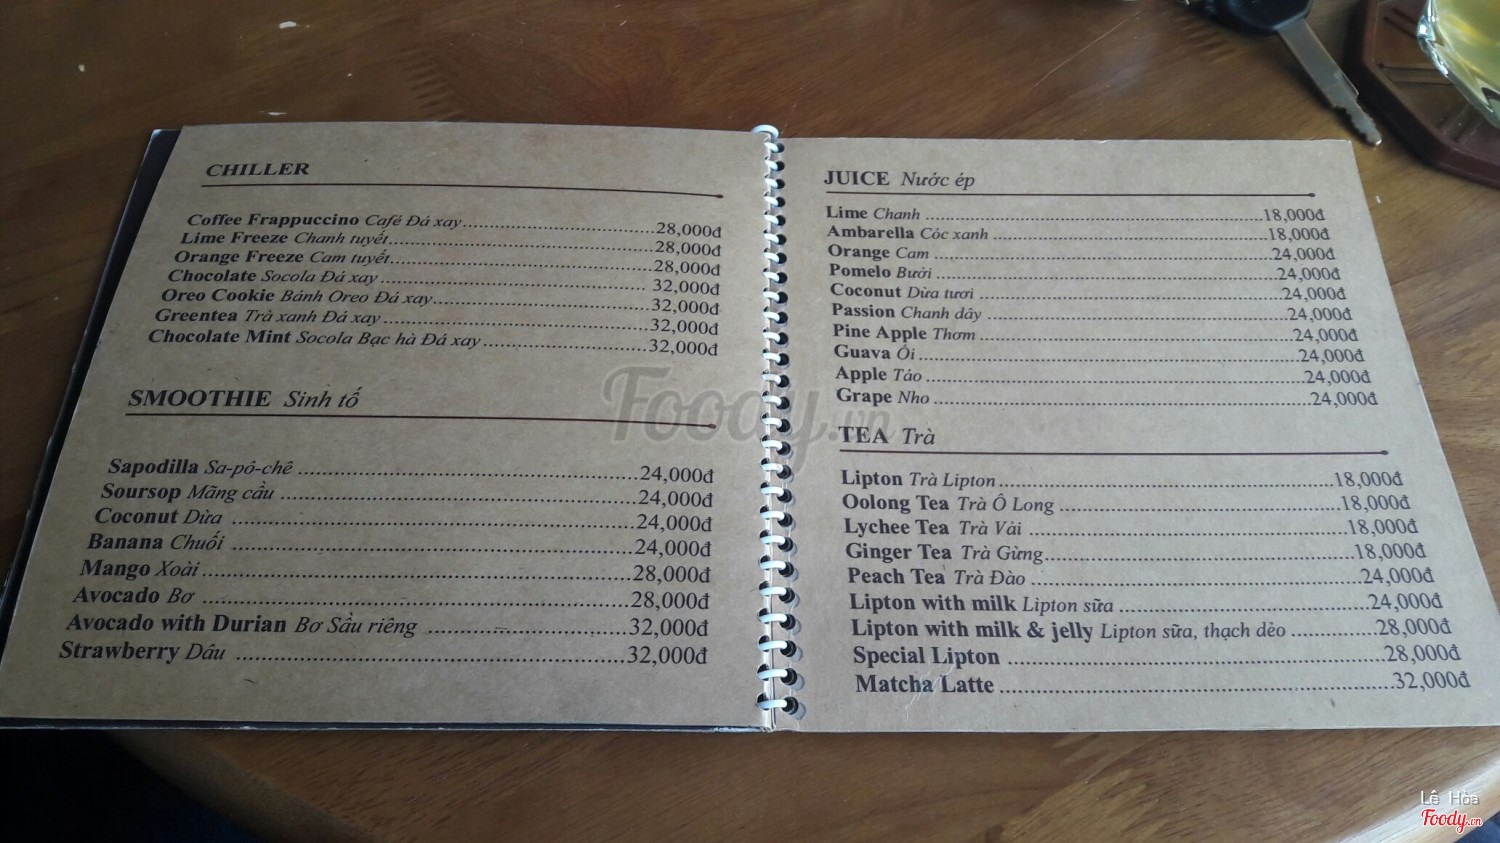 CHILLER
Coffee Frappuccino Café Đá xay 28,000đ
Lime Freeze Chanh tuyết 28,000đ
Orange Freeze Cam tuyết 28,000đ
Chocolate Socola Đá xay 32,000đ
Oreo Cookie Bánh Oreo Đá xay 32,000đ
Greentea Trà xanh Đá xay 32,000đ
Chocolate Mint Socola Bạc hà Đá xay 32,000đ
SMOOTHIE Sinh tố
Sapodilla Sa-pô-chê 24,000đ
Soursop Mãng cầu 24,000đ
Coconut Dừa 24,000đ
Banana Chuối 24,000đ
Mango Xoài 28,000đ
Avocado Bơ 28,000đ
Avocado with Durian Bơ Sầu riêng 32,000đ
Strawberry Dâu 32,000đ
JUICE Nước ép
Lime Chanh 18,000đ
Ambarella Cóc xanh 18,000đ
Orange Cam 24,000đ
Pomelo Bưởi 24,000đ
Coconut Dừa tươi 24,000đ
Passion Chanh dây 24,000đ
Pine Apple Thơm 24,000đ
Guava Ổi 24,000đ
Apple Táo 24,000đ
Grape Nho 24,000đ
TEA Trà
Lipton Trà Lipton 18,000đ
Oolong Tea Trà Ô Long 18,000đ
Lychee Tea Trà Vải 18,000đ
Ginger Tea Trà Gừng 18,000đ
Peach Tea Trà Đào 24,000đ
Lipton with milk Lipton sữa 24,000đ
Lipton with milk & jelly Lipton sữa, thạch dẻo 28,000đ
Special Lipton 28,000đ
Matcha Latte 32,000đ
Foody.vn
Lê Hòa
Foody.vn